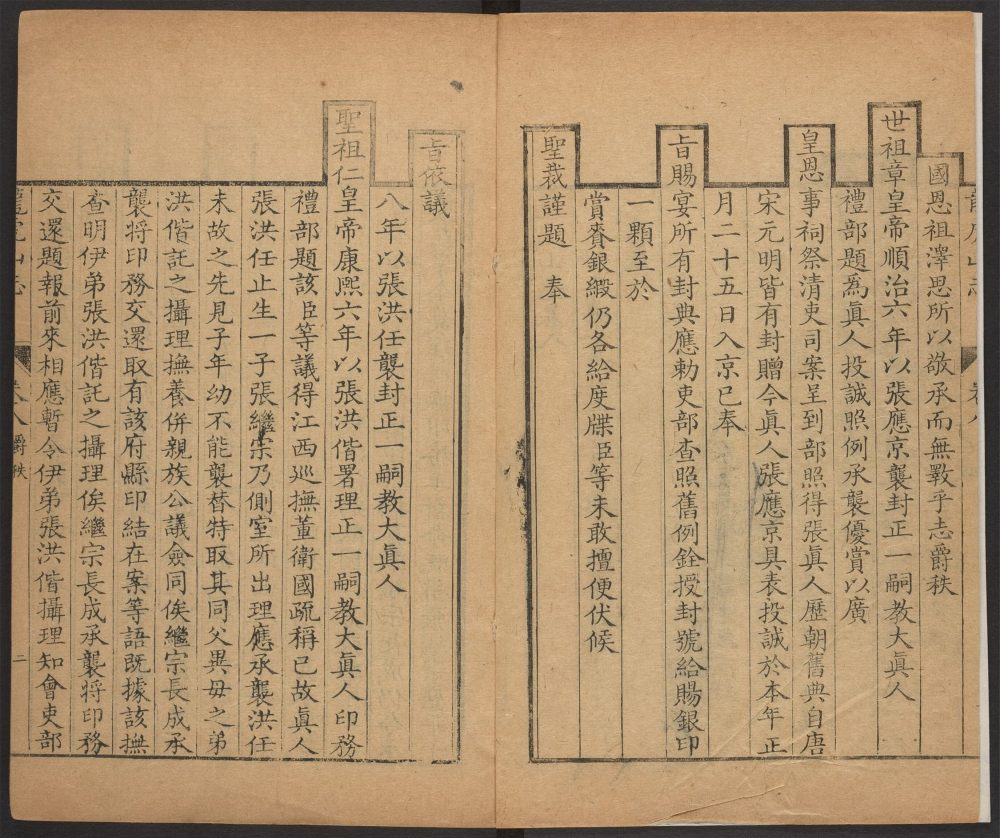 國恩祖澤思所以敬承而無斁乎志爵秩
世祖章皇帝順治六年以張應京襲封正一嗣教大眞人
禮部題為眞人投誠照例承襲優賞以廣
皇恩事祠祭清吏司案呈到部照得張眞人歷朝舊典自唐
宋元明皆有封贈今眞人張應京具表投誠於本年正
月二十五日入京已奉
旨賜宴所有封典應勅吏部查照舊例銓授封號給賜銀印
一顆至於
賞賚銀緞仍各給度牒臣等未敢擅便伏候
聖裁謹題 奉
旨依議
八年以張洪任襲封正一嗣教大眞人
聖祖仁皇帝康熙六年以張洪偕署理正一嗣教大眞人印務
禮部題該臣等議得江西巡撫董衛國疏稱已故眞人
張洪任止生一子張繼宗乃側室所出理應承襲洪任
未故之先見子年幼不能襲替特取其同父異毋之弟
洪偕託之攝理撫養併親族公議僉同俟繼宗長成承
襲將印務交還取有該府縣印結在案等語既據該撫
查明伊弟張洪偕託之攝理俟繼宗長成承襲將印務
交還題報前來相應暫令伊弟張洪偕攝理知會吏部
山志 卷八 爵秩 二